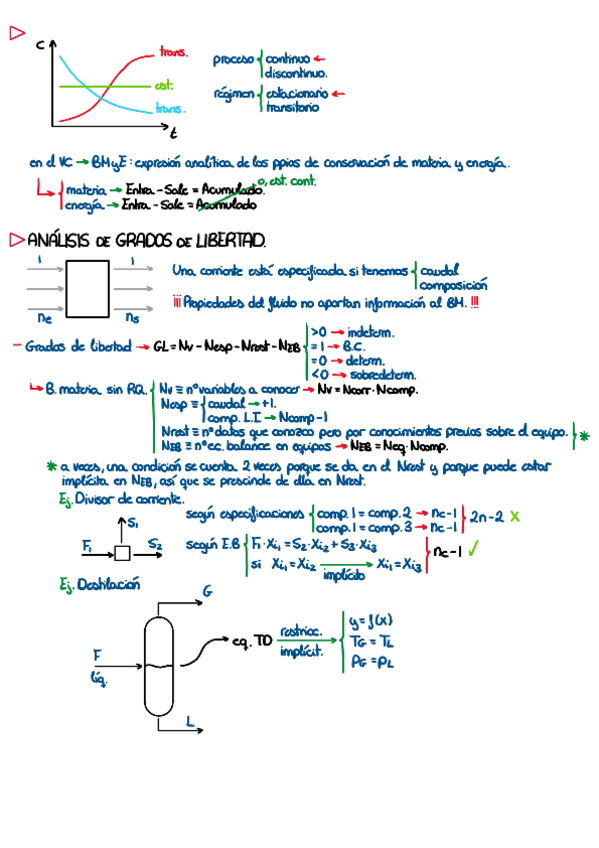 C
trans.
est.
trans.
t
proceso { continuo ←
discontinuo.
régimen { estacionario ←
transitorio
en el VC → BMyE: expresión analítica de los ppios de conservación de materia y energía.
materia → Entra - Sale = Acumulado. 0, est. cont.
energía → Entra - Sale = Acumulado
ANÁLISIS DE GRADOS DE LIBERTAD.
1 1
ne ns
Una corriente está especificada si tenemos { caudal
composición
¡¡¡ Propiedades del fluido no aportan información al BM. !!!
- Grados de libertad → GL = Nv - Nesp - Nrest - NEB
>0 → indeterm.
=1 → B.C.
=0 → determ.
<0 → sobredeterm.
B. materia sin RQ. { Nv ≡ nº variables a conocer → Nv = Ncorr · Ncomp.
Nesp ≡ { caudal → +1.
comp. L.I → Ncomp-1
Nrest ≡ nº datos que conozco pero por conocimientos previos sobre el equipo. } *
NEB ≡ nº ec. balance en equipos → NEB = Neq · Ncomp.
* a veces, una condición se cuenta 2 veces porque se da en el Nrest y porque puede estar
implícita en NEB, así que se prescinde de ella en Nrest.
Ej. Divisor de corriente.
S1
F1
S2
según especificaciones { comp. 1 = comp. 2 → nc-1
comp. 1 = comp. 3 → nc-1 } 2n-2 X
según E.B { F1 · Xi1 = S2 · Xi2 + S3 · Xi3
si Xi1 = Xi2 → Xi1 = Xi3
implícito
nc-1 ✓
Ej. Destilación
G
F
líq.
L
eq. TD
restricc.
implícit.
y = f(x)
TG = TL
PG = PL